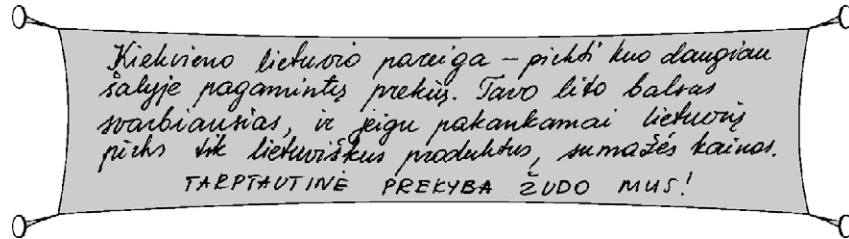 Kiekvieno lietuvio pareiga – pirkti kuo daugiau
šalyje pagamintų prekių. Tavo lito balsas
svarbiausias, ir jeigu pakankamai lietuvių
pirks tik lietuviškus produktus, sumažės kainos.
TARPTAUTINĖ PREKYBA ŽUDO MUS!